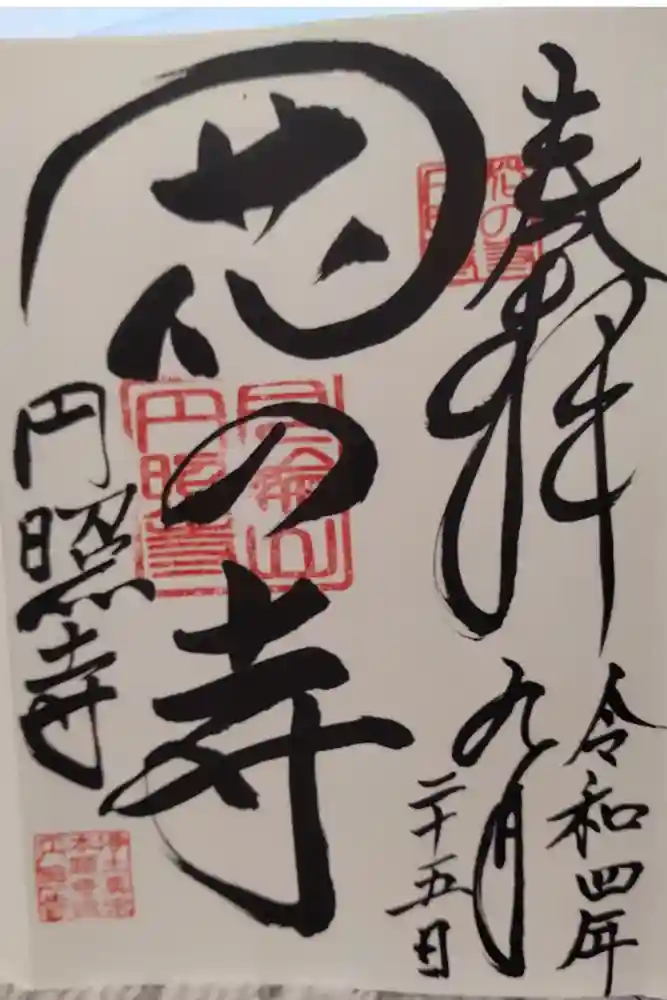 奉拝
令和四年
九月
二十五日
花の寺
円照寺
花の寺
円照寺
円照寺